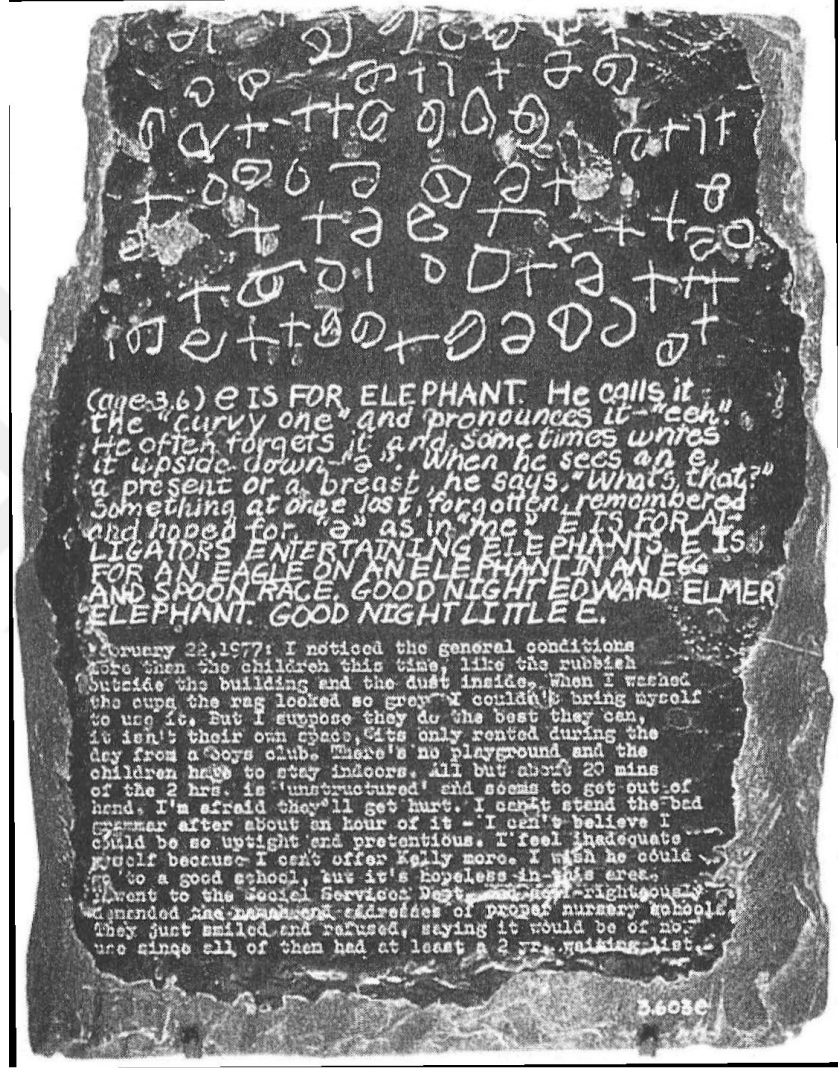 (age 3.6) e IS FOR ELEPHANT. He calls it
the "curvy one" and pronounces it-"eeh".
He often forgets it and sometimes writes
it upside down-"ə". When he sees an e,
a present or a breast, he says, "What's that?"
Something at once lost, forgotten, remembered
and hoped for, "ə" as in "me". E IS FOR AL-
LIGATORS ENTERTAINING ELEPHANTS. E IS
FOR AN EAGLE ON AN ELEPHANT IN AN EGG
AND SPOON RACE. GOOD NIGHT EDWARD ELMER
ELEPHANT. GOOD NIGHT LITTLE E.
February 22,1977: I noticed the general conditions
more than the children this time, like the rubbish
outside the building and the dust inside. When I washed
the cups the rag looked so grey I couldn't bring myself
to use it. But I suppose they do the best they can,
it isn't their own space, its only rented during the
day from a boys club. There's no playground and the
children have to stay indoors. All but about 20 mins
of the 2 hrs. is 'unstructured' and seems to get out of
hand. I'm afraid they'll get hurt. I can't stand the bad
grammar after about an hour of it - I can't believe I
could be so uptight and pretentious. I feel inadequate
myself because I cant offer Kelly more. I wish he could
go to a good school, but it's hopeless in this area.
I went to the Social Services Dept. and self-righteously
demanded the names and addresses of proper nursery schools.
They just smiled and refused, saying it would be of no
use since all of them had at least a 2 yr. waiting list.
3.603e